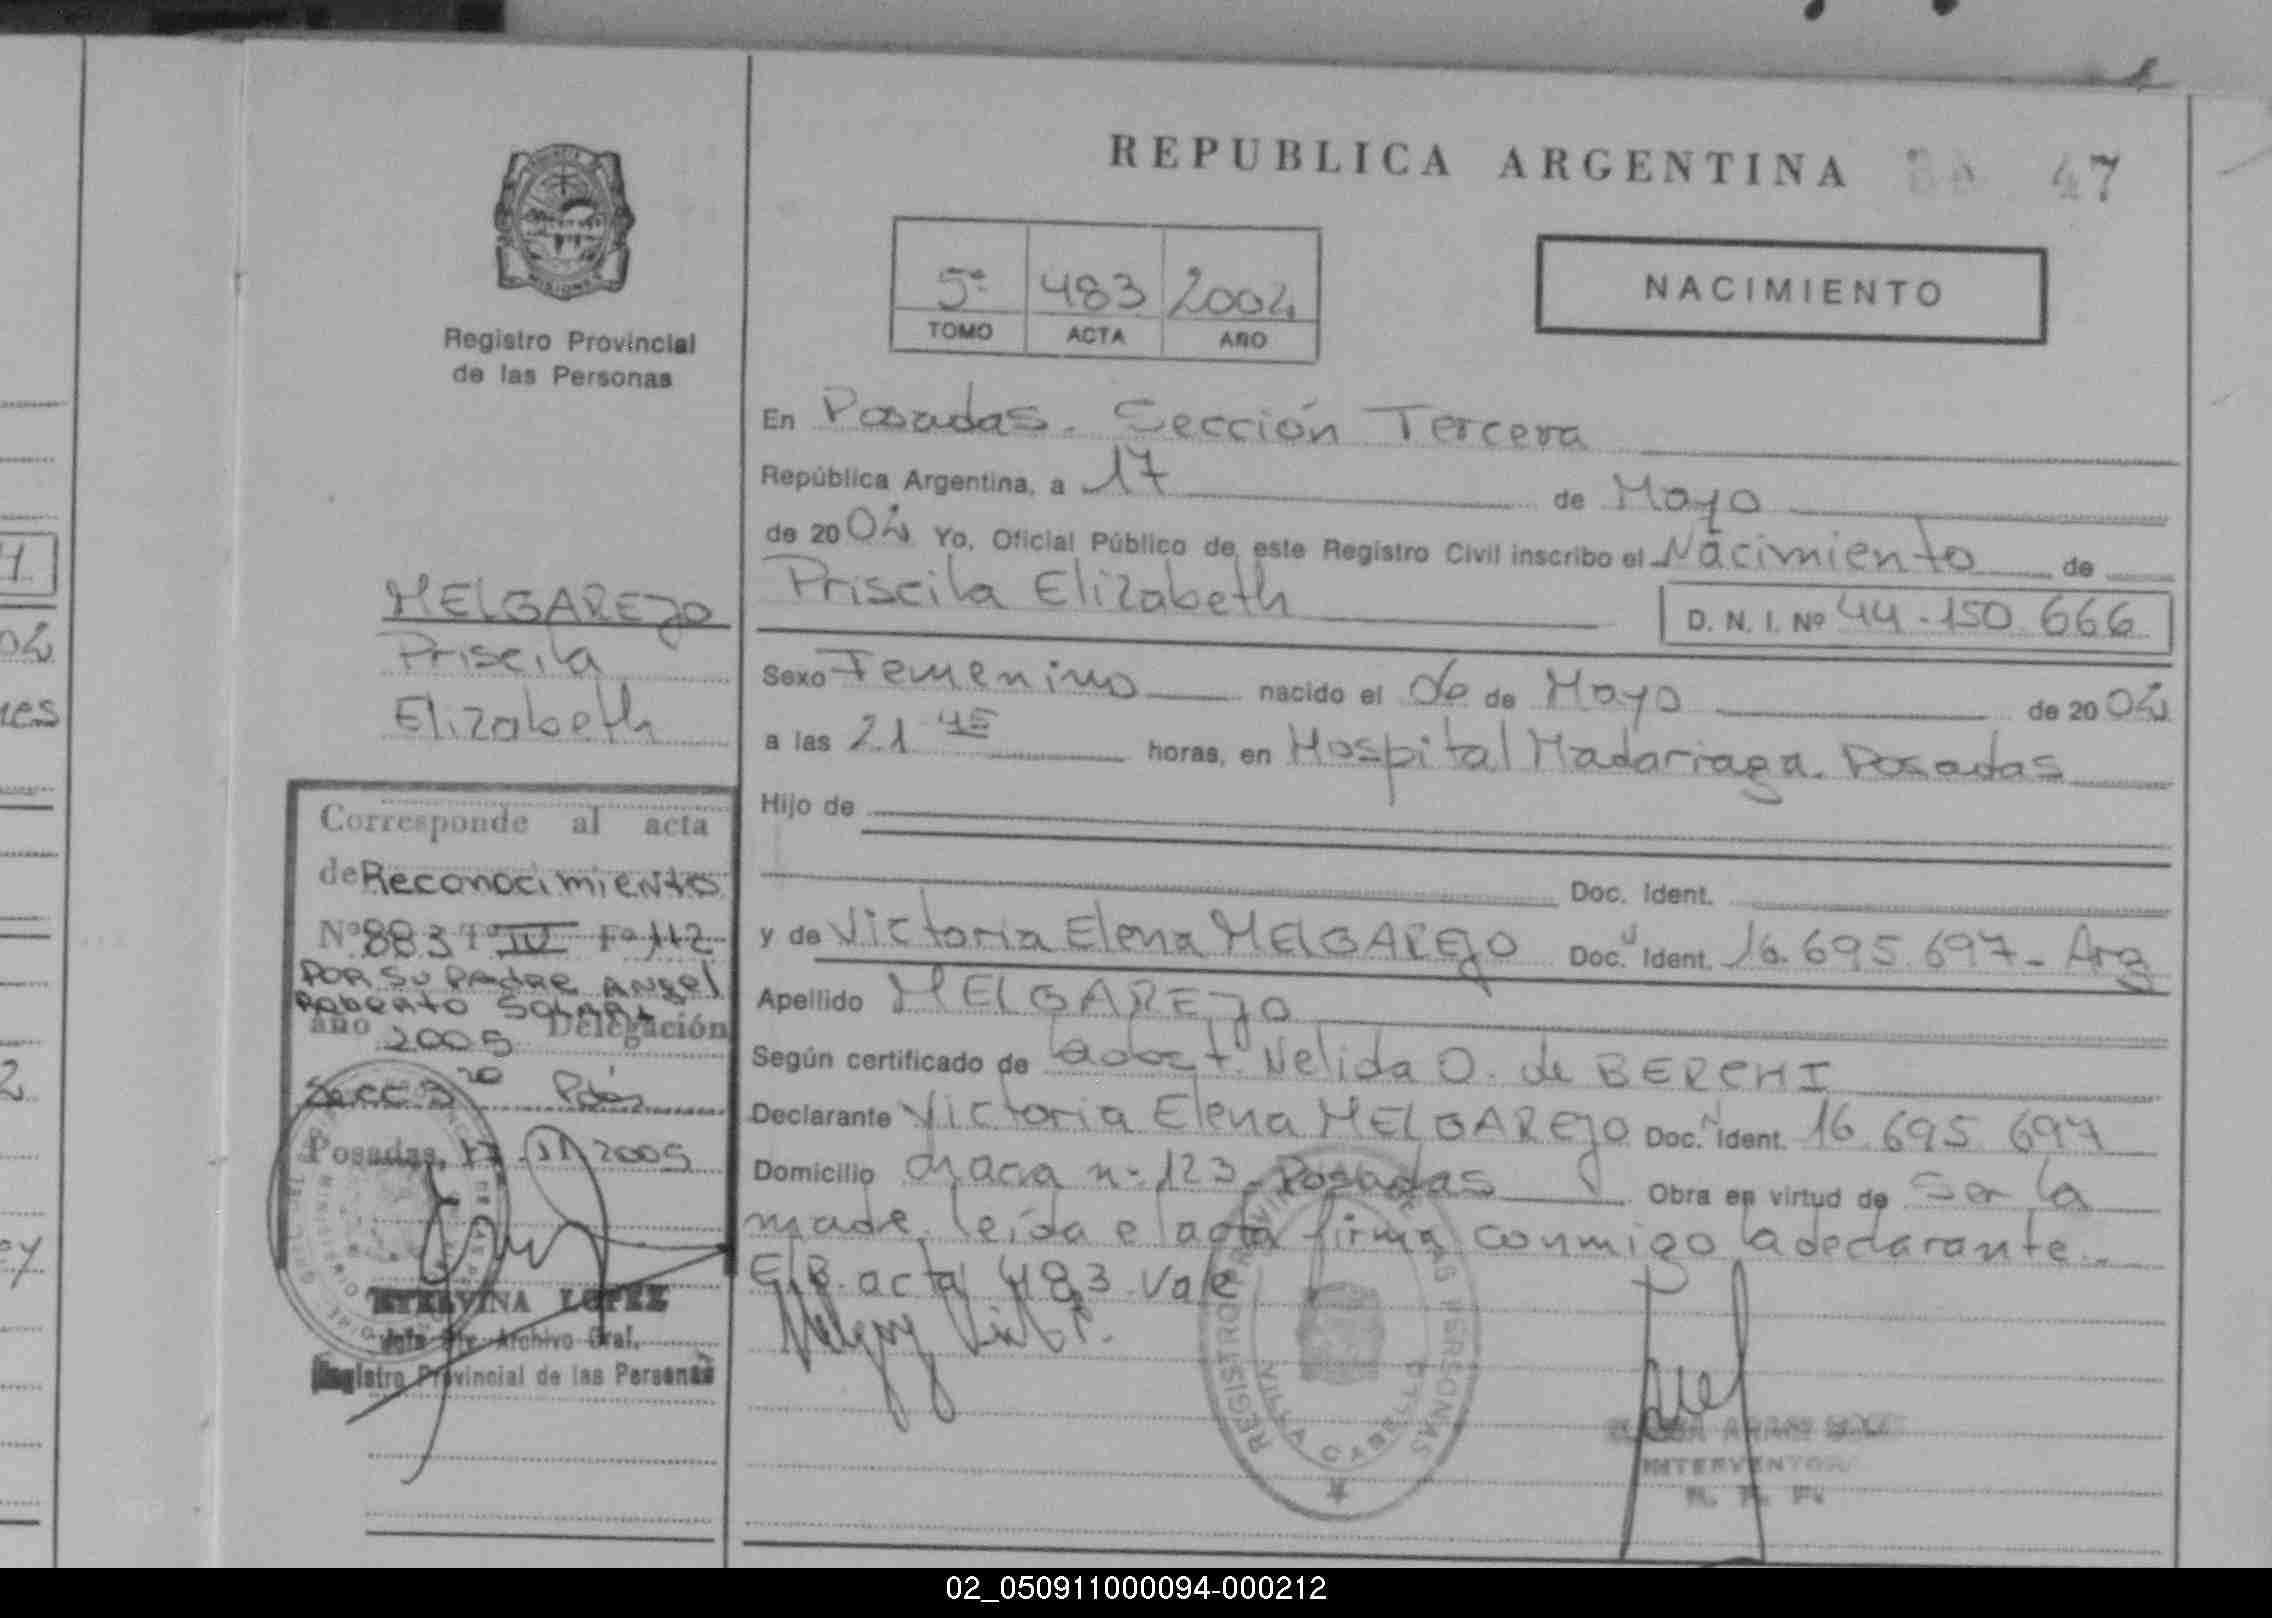 REPUBLICA ARGENTINA 47
5º 483 2004
TOMO ACTA AÑO
NACIMIENTO
Registro Provincial
de las Personas
En Posadas. Sección Tercera
República Argentina, a 17 de Mayo
de 2004 Yo, Oficial Público de este Registro Civil inscribo el Nacimiento de
Priscila Elizabeth D. N. I. Nº 44.150.666
Sexo Femenino nacido el 06 de Mayo de 2004
a las 21 45 horas, en Hospital Madariaga. Posadas
Hijo de
Doc. Ident.
y de Victoria Elena MELGAREJO Doc. Ident. 16.695.697 - Arg
Apellido MELGAREJO
Según certificado de la obst. Nelida O. de BERCHI
Declarante Victoria Elena MELGAREJO Doc. Ident. 16.695.697
Domicilio chacra nº 123. Posadas Obra en virtud de ser la
madre, leída el acta firma conmigo la declarante.-
E/B. acta 483 Vale
MELGAREJO
Priscila
Elizabeth
Corresponde al acta
de Reconocimiento
Nº 883 Tº IV Fº 112
POR SU PADRE ANGEL
ROBERTO
año 2005 Delegación
Secc 3ra Pdas
Posadas, 2005
ETELVINA LOPEZ
Jefe Archivo Gral.
Registro Provincial de las Personas
REGISTRO PROVINCIAL DE LAS PERSONAS
VILLA CABELLO
INTERVENTOR
02_050911000094-000212